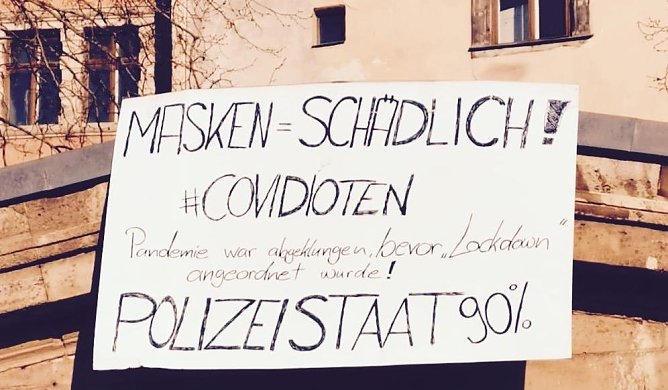 MASKEN = SCHÄDLICH!
#COVIDIOTEN
Pandemie war abgeklungen, bevor „Lockdown“
angeordnet wurde!
POLIZEISTAAT 90%